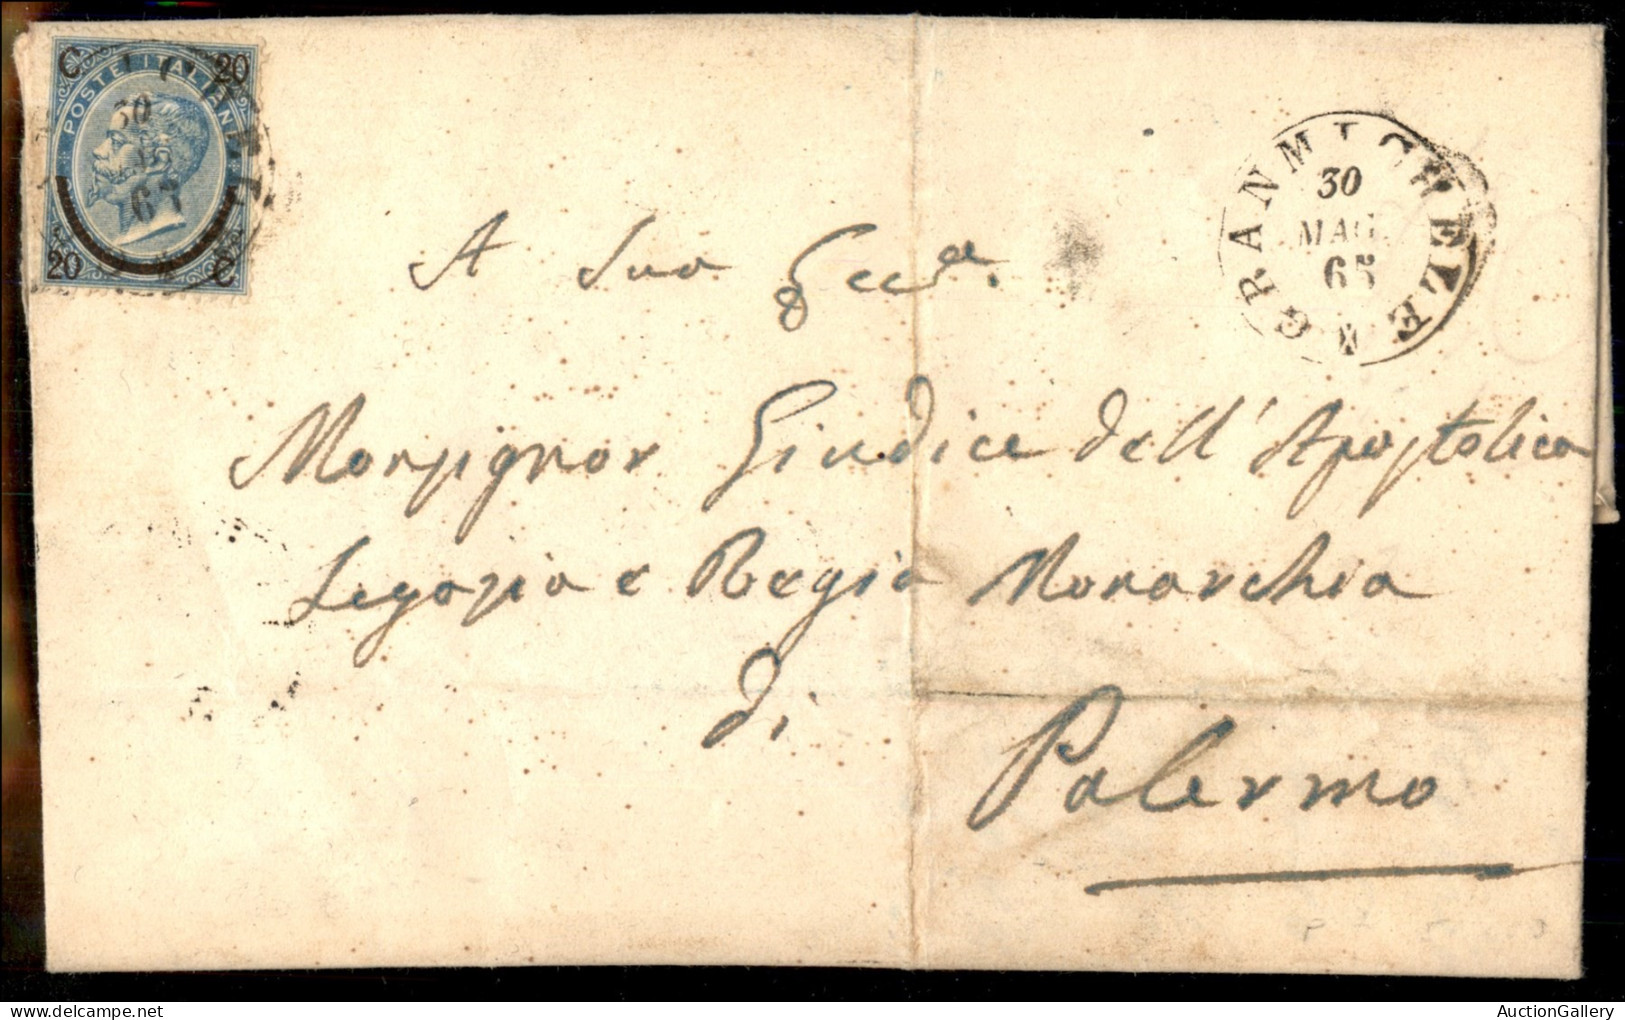 C 20
POSTE ITALIANE
20 C
30
65
GRANMICHELE
30
MAG.
65
A Sua Ecc.a
Monsignor Giudice dell'Apostolica
Legazia e Regia Monarchia
di
Palermo
AuctionGallery